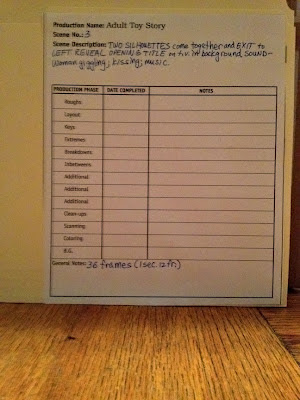 Production Name: Adult Toy Story
Scene No.: 3
Scene Description: TWO SILHOUETTES come together and EXIT to
LEFT REVEAL OPENING TITLE on t.v. in background, SOUND-
Woman giggling; kissing; music.
PRODUCTION PHASE DATE COMPLETED NOTES
Roughs
Layout
Keys
Extremes
Breakdowns
Inbetweens
Additional
Additional
Additional
Clean-ups
Scanning
Coloring
B.G.
General Notes: 36 frames (1sec 12fr)